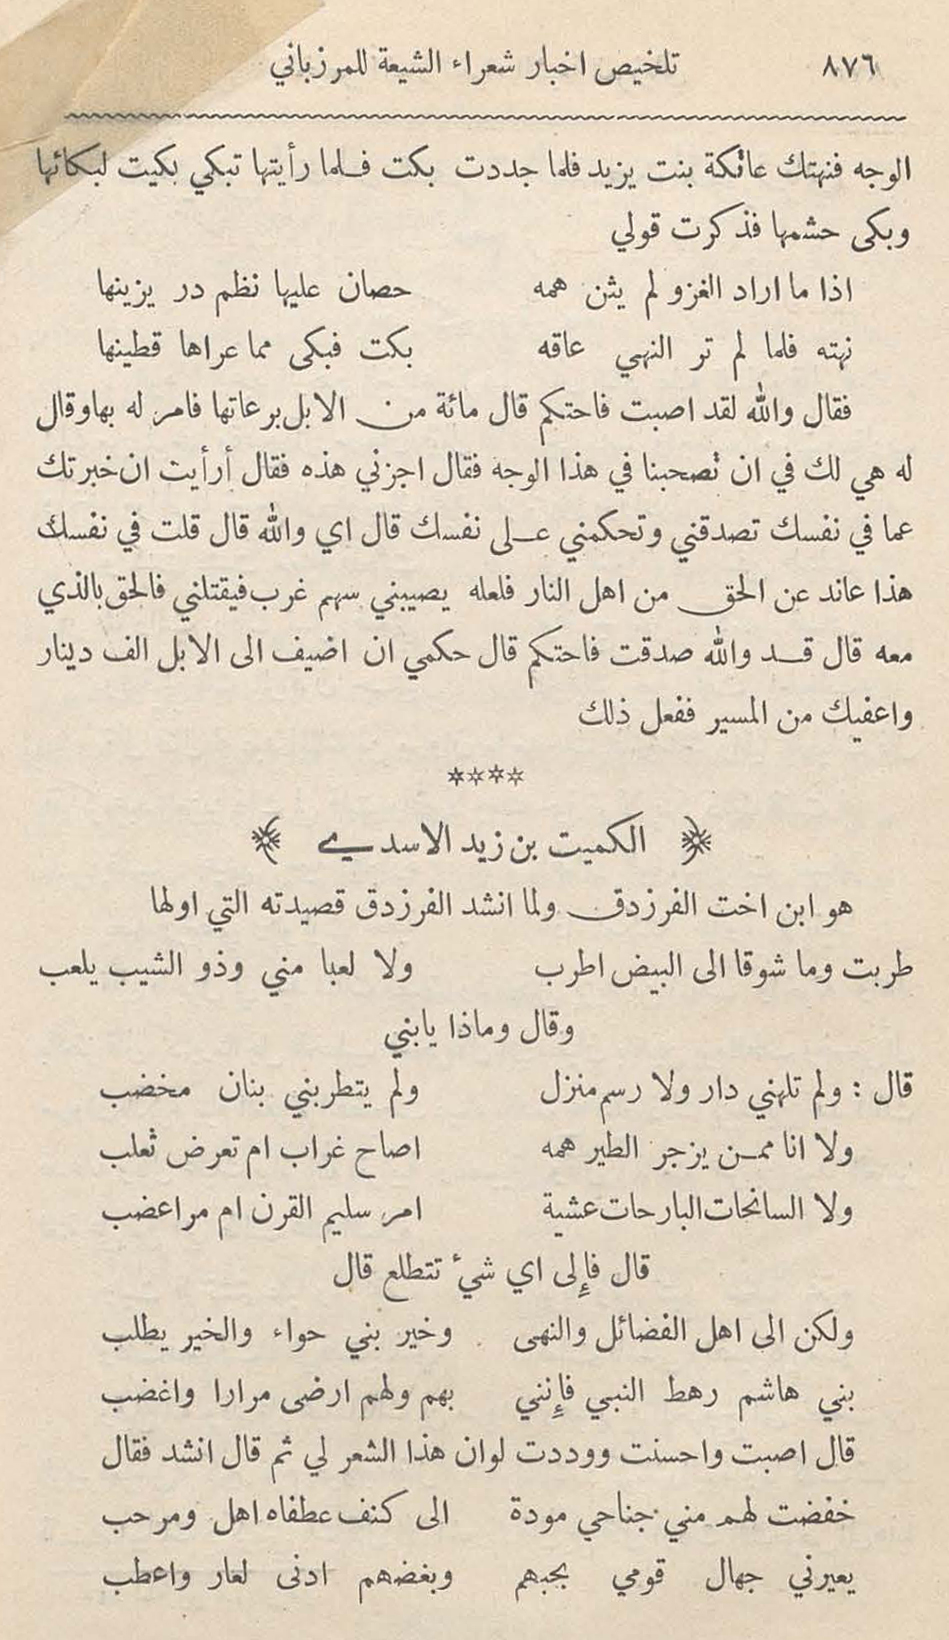 ٨٧٦ تلخيص اخبار شعراء الشيعة للمرزباني
الوجه فنهتك عاتكة بنت يزيد فلما جددت بكت فلما رأيتها تبكي بكيت لبكائها
وبكى حشمها فذكرت قولي
اذا ما اراد الغزو لم يثن همه حصان عليها نظم در يزينها
نهته فلما لم تر النهي عاقه بكت فبكى مما عراها قطينها
فقال والله لقد اصبت فاحتكم قال مائة من الابل برعاتها فامر له بها وقال
له هي لك في ان تصحبنا في هذا الوجه فقال اجزني هذه فقال أرأيت ان خبرتك
عما في نفسك تصدقني وتحكمني على نفسك قال اي والله قال قلت في نفسك
هذا عاند عن الحق من اهل النار فلعله يصيبني سهم غرب فيقتلني فالحق بالذي
معه قال قد والله صدقت فاحتكم قال حكمي ان اضيف الى الابل الف دينار
واعفيك من المسير ففعل ذلك
****
الكميت بن زيد الاسدي
هو ابن اخت الفرزدق ولما انشد الفرزدق قصيدته التي اولها
طربت وما شوقا الى البيض اطرب ولا لعبا مني وذو الشيب يلعب
وقال وماذا يابني
قال : ولم تلهني دار ولا رسم منزل ولم يتطربني بنان مخضب
ولا انا ممن يزجر الطير همه اصاح غراب ام تعرض ثعلب
ولا السانحات البارحات عشية امر سليم القرن ام مر اعضب
قال فإلى اي شيء تتطلع قال
ولكن الى اهل الفضائل والنهى وخير بني حواء والخير يطلب
بني هاشم رهط النبي فإنني بهم ولهم ارضى مرارا واغضب
قال اصبت واحسنت ووددت لوان هذا الشعر لي ثم قال انشد فقال
خفضت لهم مني جناحي مودة الى كنف عطفاه اهل ومرحب
يعيرني جهال قومي بحبهم وبغضهم ادنى لعار واعطب